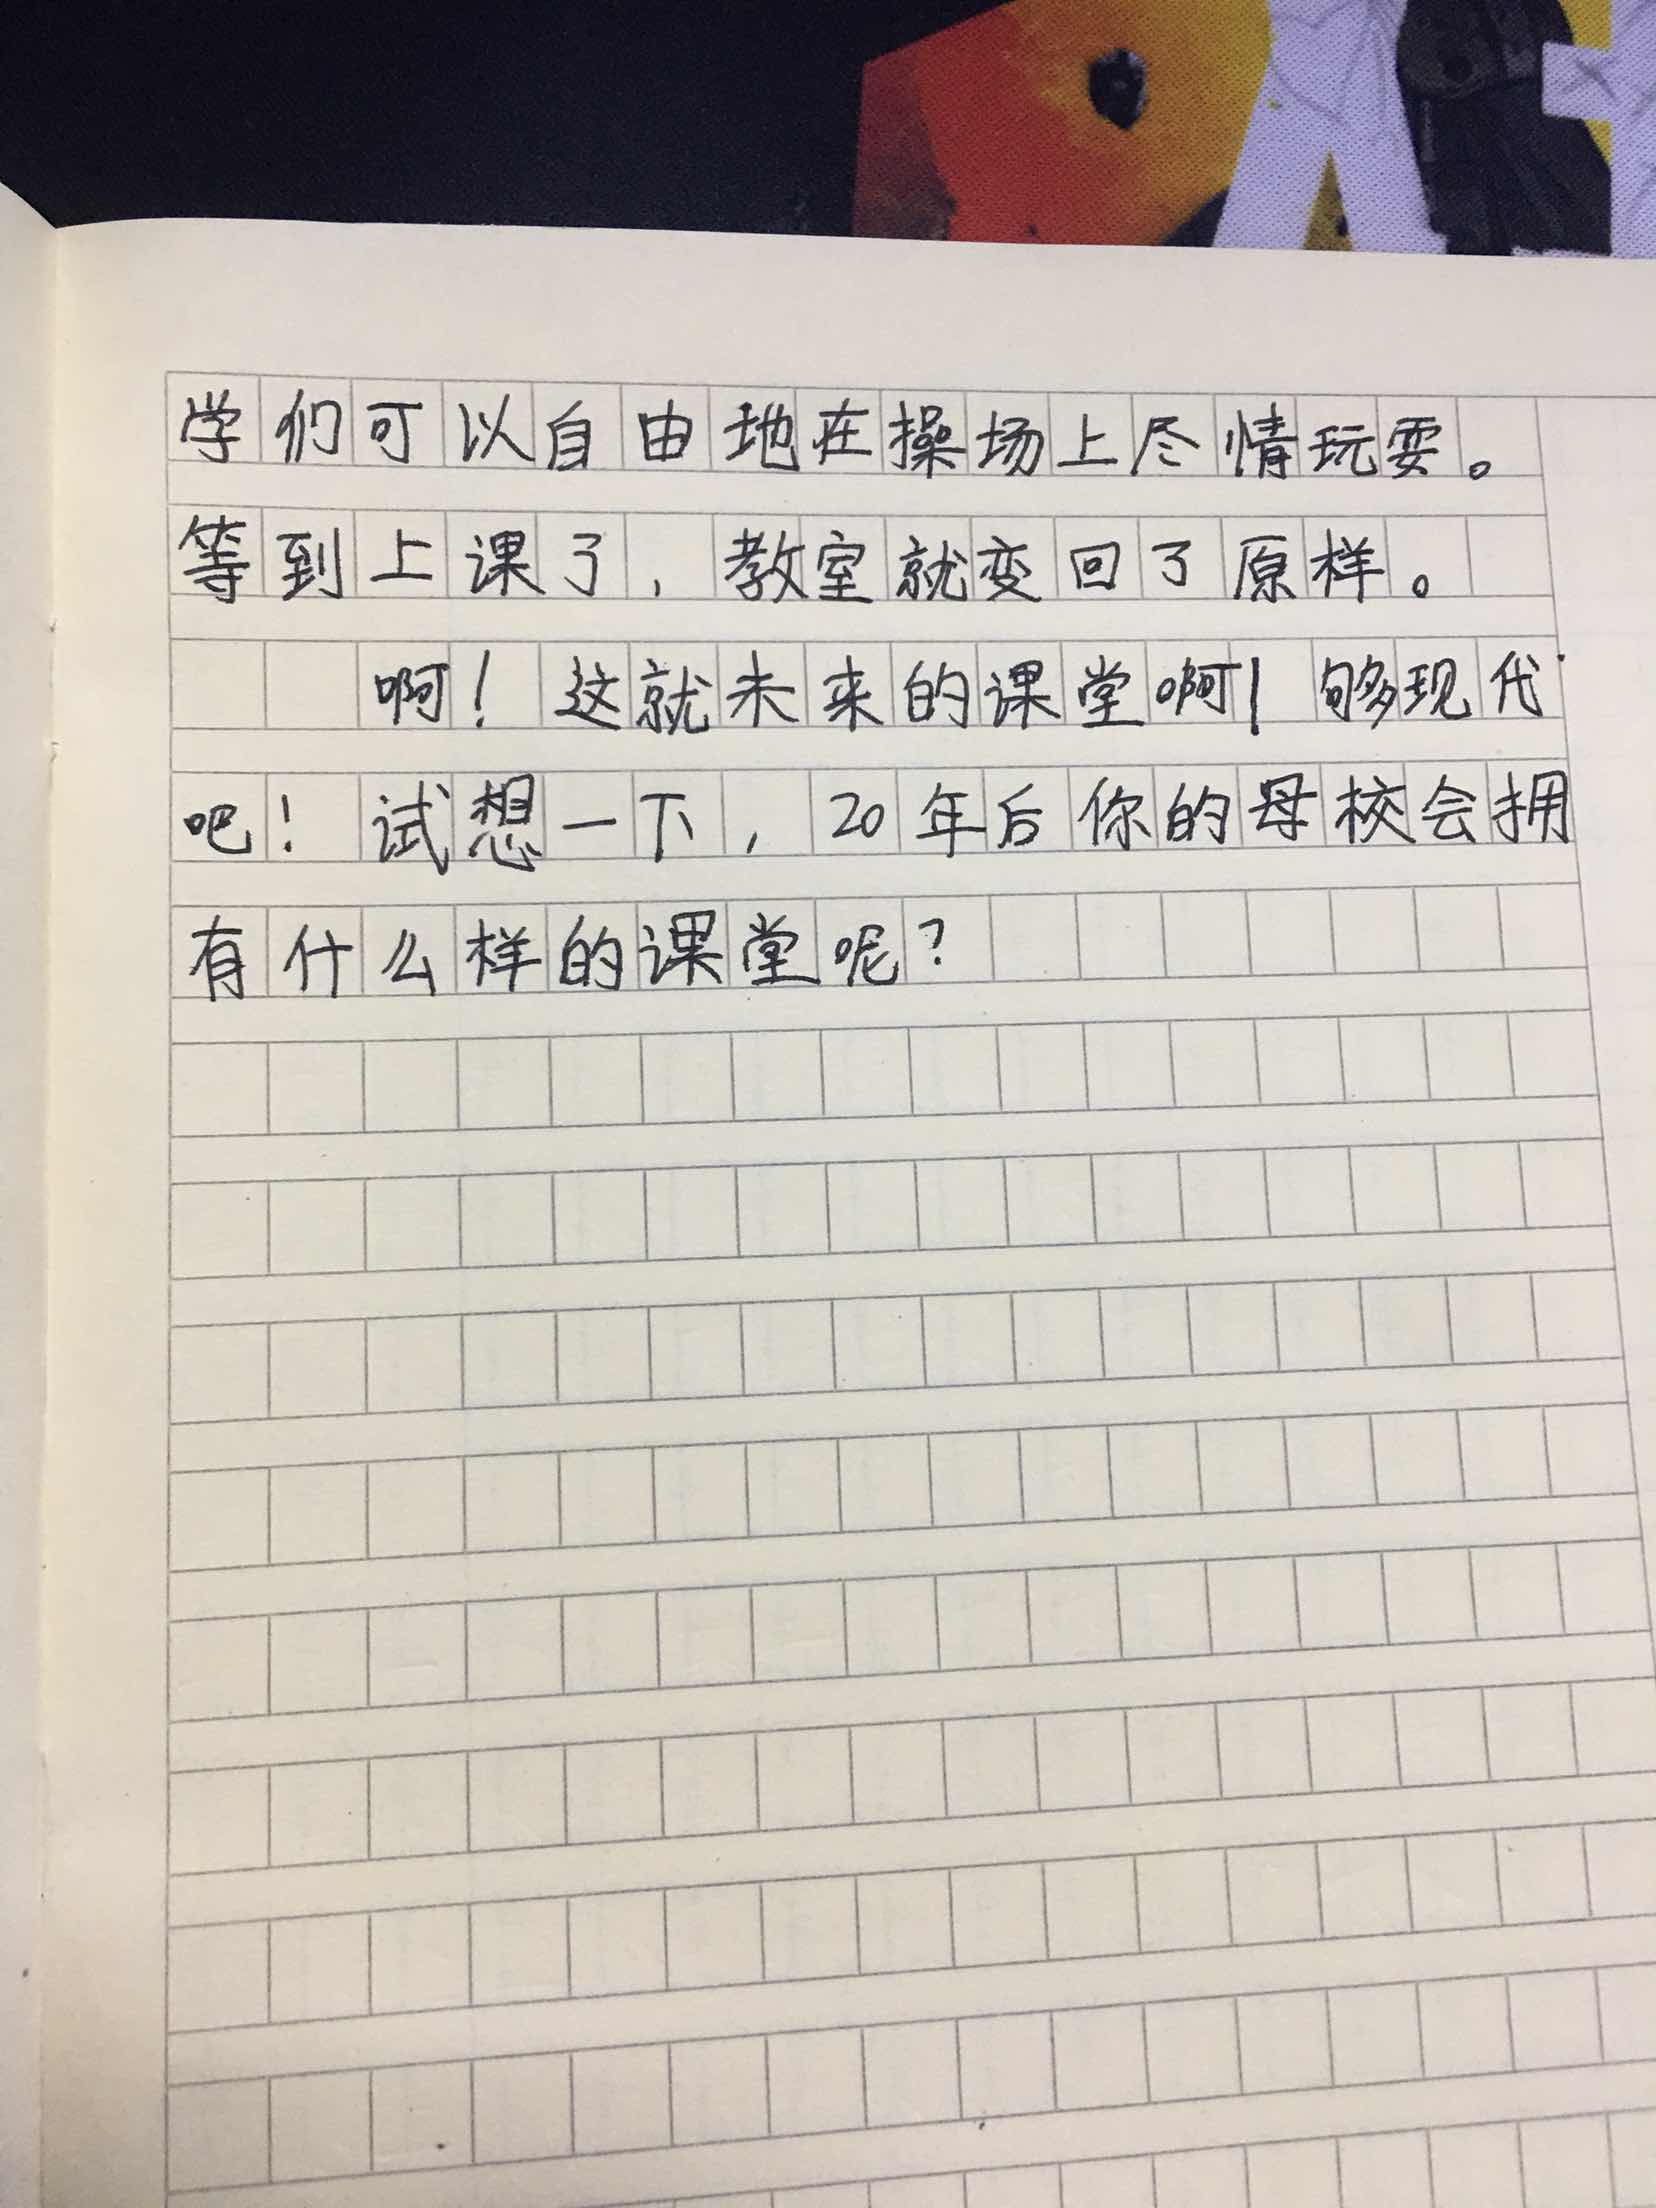 学们可以自由地在操场上尽情玩耍。
等到上课了，教室就变回了原样。
啊！这就未来的课堂啊！够现代
吧！试想一下，20年后你的母校会拥
有什么样的课堂呢？